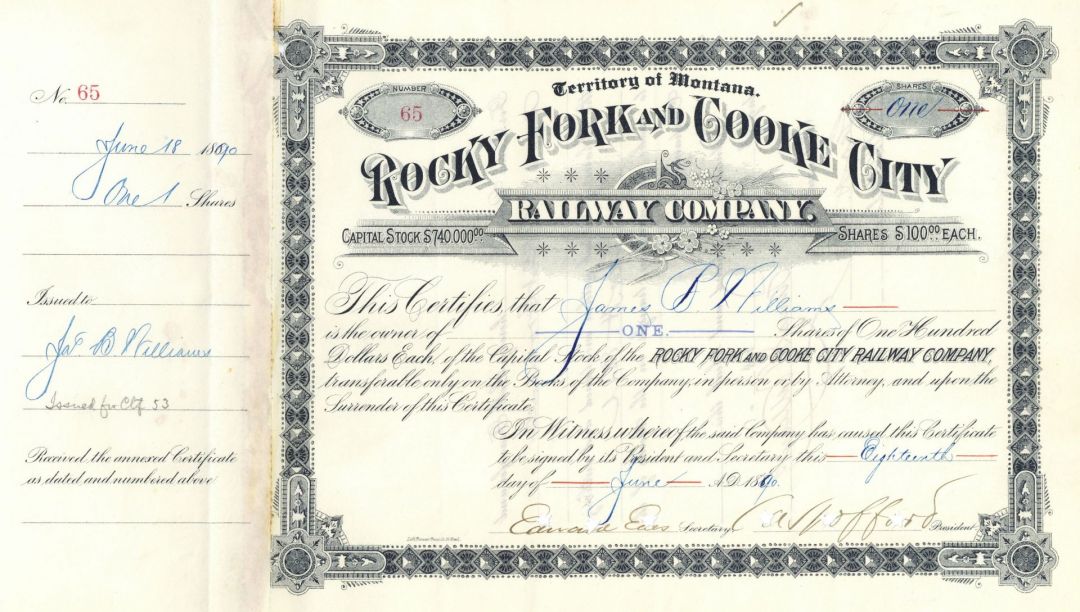 No. 65
June 18 1890
One 1 Shares
Issued to
Jas B Williams
Issued for Ctf. 53
Received the annexed Certificate
as dated and numbered above
NUMBER
65
Territory of Montana.
SHARES
One
ROCKY FORK AND COOKE CITY
RAILWAY COMPANY.
CAPITAL STOCK $740.000.00
SHARES $100.00 EACH.
This Certifies, that James B. Williams
is the owner of ONE. Shares of One Hundred
Dollars Each, of the Capital Stock of the ROCKY FORK AND COOKE CITY RAILWAY COMPANY,
transferable only on the Books of the Company, in person or by Attorney, and upon the
Surrender of this Certificate.
In Witness whereof the said Company has caused this Certificate
to be signed by its President and Secretary this Eighteenth
day of June A.D. 1890.
Secretary
C A Spofford President